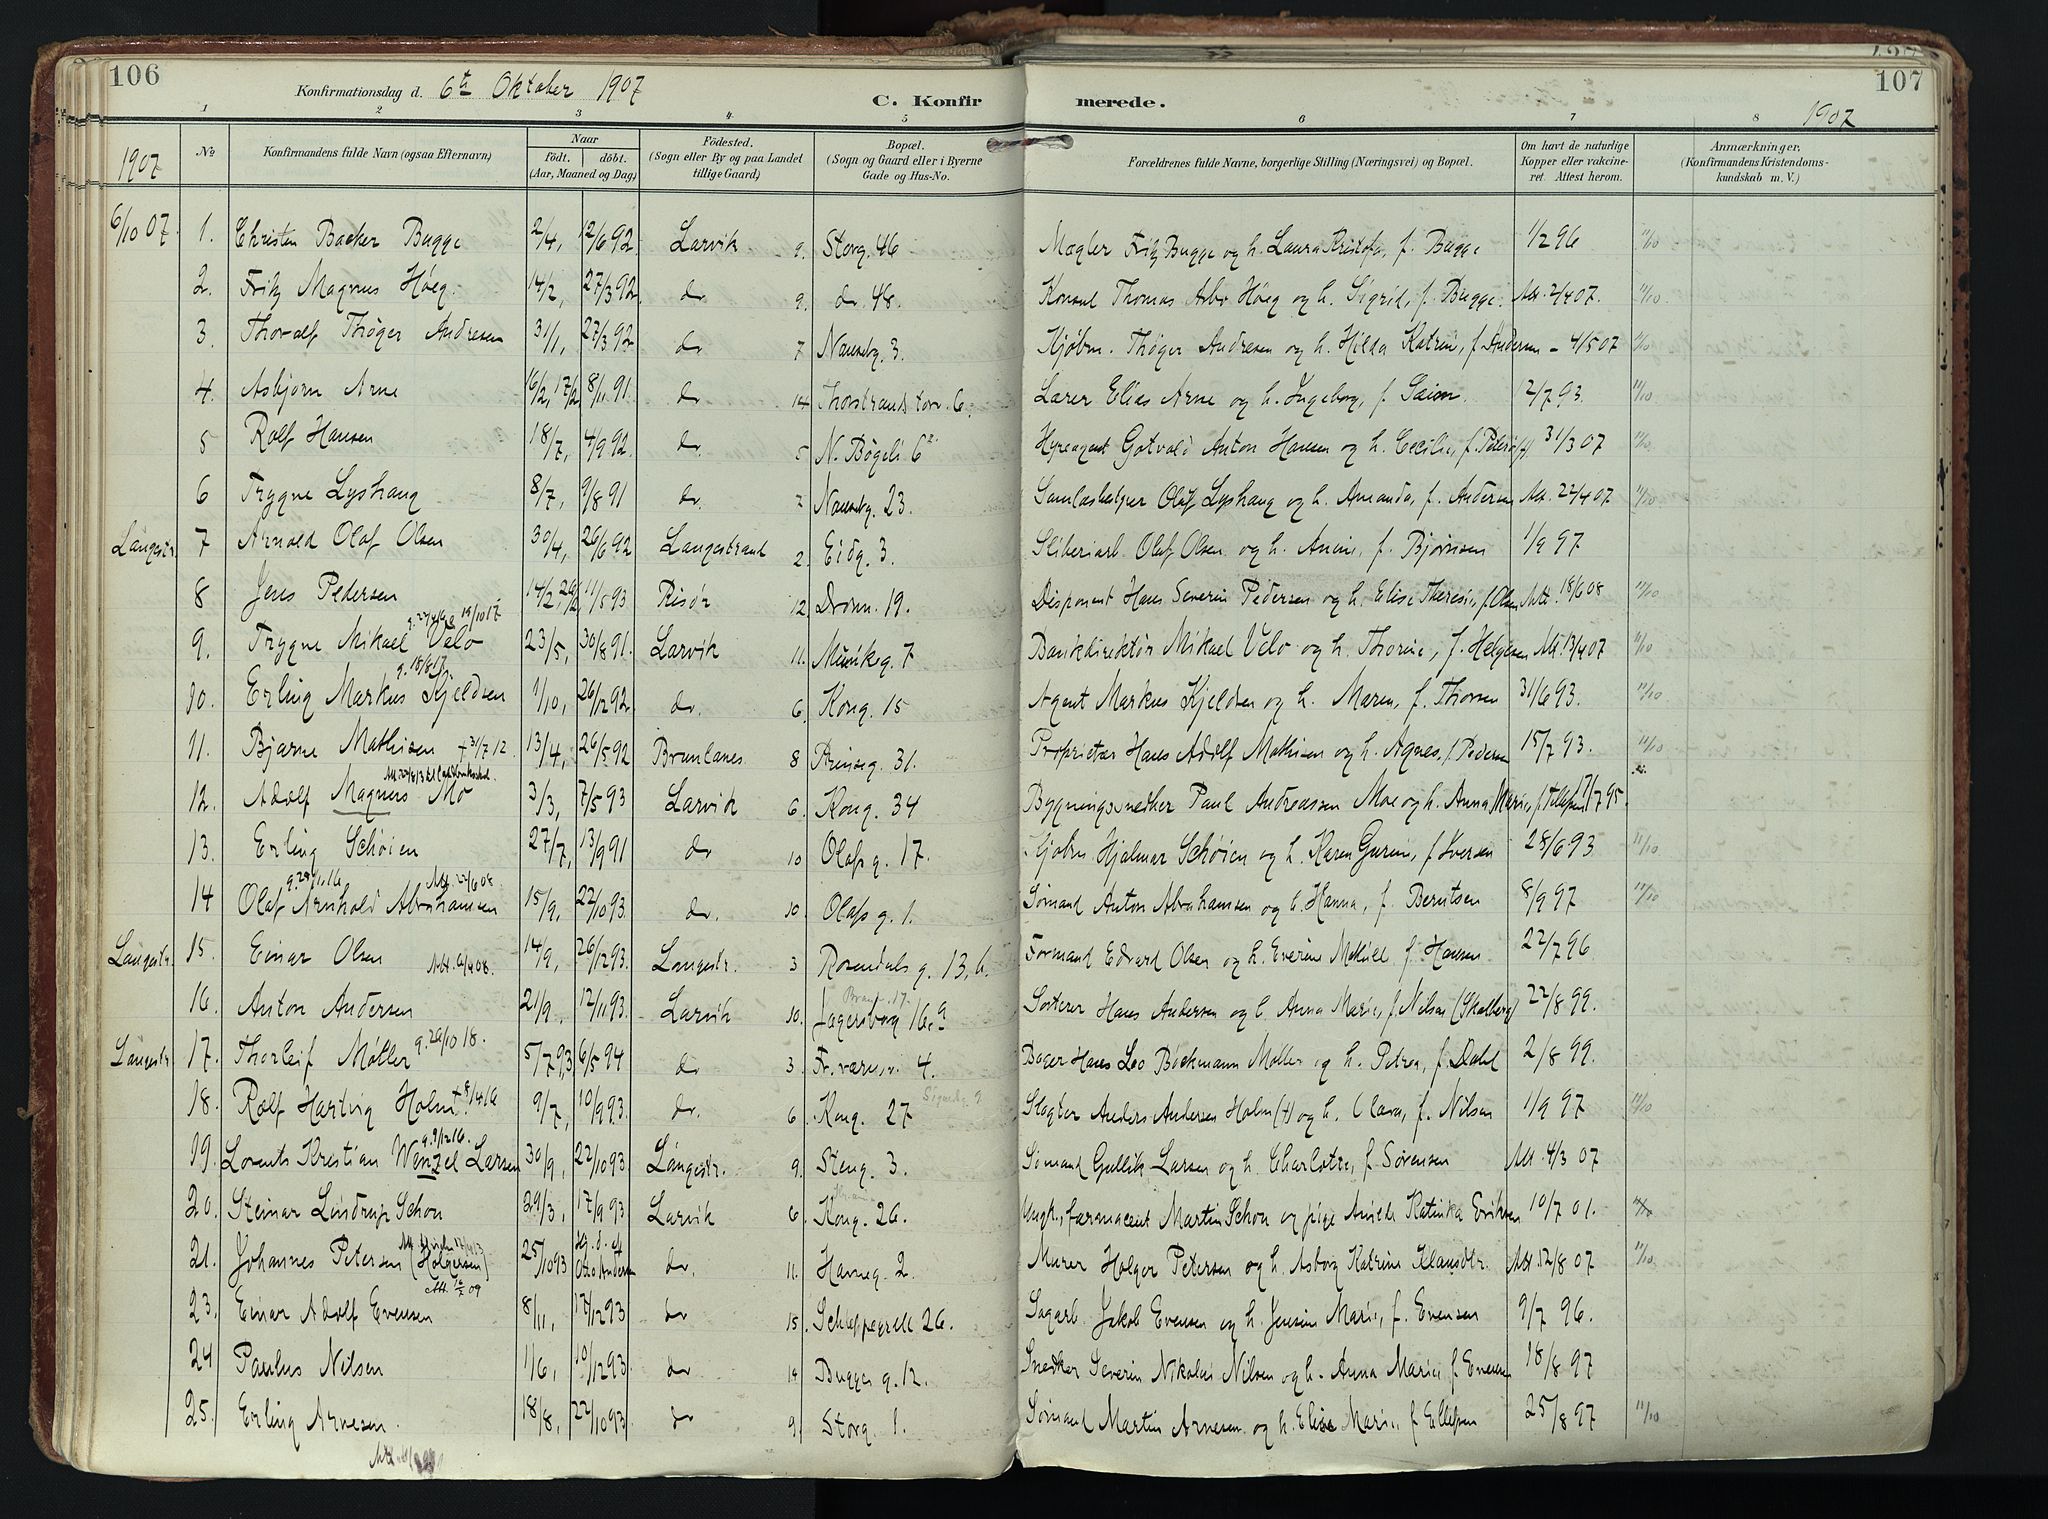 106
Konfirmationsdag d. 6te Oktober 1907
C. Konfirmerede.
107
1907
1 2 3 4 5 6 7 8
1907
No
Konfirmandens fulde Navn (ogsaa Efternavn)
Naar
født. døbt.
(Aar, Maaned og Dag)
Födested.
(Sogn eller By og paa Landet tillige Gaard)
Bopæl.
(Sogn og Gaard eller i Byerne Gade og Hus-No.
Forældrenes fulde Navne, borgerlige Stilling (Næringsvei) og Bopæl.
Om havt de naturlige Kopper eller vakcineret. Attest herom.
Anmærkninger.
(Konfirmandens Kristendomskundskab m. V.)
6/10 07. 1. Christen Backer Bugge 2/4, 12/6 92 Larvik 9. Storg. 46 Mægler Fritz Bugge og h. Laura f. Bugge 1/2 96 11/10
2. Fritz Magnus Höeg. 14/2, 27/3 92 do 9. do. 48. Konsul Thomas Arbo Höeg og h. Sigrid, f. Bugge. Att. 2/4 07. 11/10
3. Thoralf Thøger Andresen 31/1, 27/3 92 do 7 Nanseng. 3. Kjøbm. Thøger Andresen og h. Hilda Katrine, f. Andersen - 4/5 07 11/10
4. Asbjørn Arne 16/2, 17/2 8/11 91 do 14 Thorstrands torv 6. Lærer Elias Arne og h. Ingeborg, f. 12/7 93. 11/10
5 Rolf Hansen 18/7, 4/9 92. do. 5 N. Bøgeli 6 Hyreagent Gotvald Anton Hansen og h. Cecilie, f. 31/3 07 11/10
6 Trygve Lyshaug 8/7, 9/8 91 do. 7 Nanseng. 23. Olaf Lyshaug og h. Amanda, f. Andersen Att. 22/4 07. 11/10
Langestr. 7 Arnold Olaf Olsen 30/4, 26/6 92 Langestrand 2. Eidg. 3. Sliberiarb. Olaf Olsen og h. Anine, f. Bjørnsen 1/9 97
8 Jens Pedersen 14/2 11/5 93 Risør 12 Dronn. 19. Disponent Hans Severin Pedersen og h. Elise Theresie, f. Olsen Att. 18/6 08 11/10
9. Trygve Mikael Velo 23/5, 30/8 91. Larvik 11. Munkeg. 7 Bankdirektør Mikael Velo og h. Thorine, f. Helgesen Att. 13/4 07 11/10
g. 18/8 17.
10. Erling Markus Kjeldsen 1/10, 26/12 92 do. 6. Kong. 15 Agent Markus Kjeldsen og h. Maren, f. Thorsen 31/6 93. 11/10
11. Bjarne Mathisen + 31/7 12. 13/4, 26/5 92 Brunlanes 8 Prinseg. 31. Proprietær Hans Adolf Mathisen og h. Agnes, f. Pedersen 15/7 93. 11/10
12. Adolf Magnus Mo 3/3, 7/5 93 Larvik 6. Kong. 34 Bygningssnedker Paul Andreassen Moe og h. Anna Marie, f. Tellefsen 17/7 95.
13. Erling Schøien 27/7, 13/9 91 do 10 Olafs g. 17. Kjøbm Hjalmar Schøien og h. Karen Gurine, f. Iversen 28/6 93 11/10
Att. 22/6 08.
14 Olaf Arnhold Abrahamsen 15/9, 22/10 93. do. 10. Olafs g. 1. Sømand Anton Abrahamsen og h. Hanna, f. Berntsen 8/9 97 11/10
Langestr. 15. Einar Olsen 14/9, 26/12 93. Langestr. 3 Rosendals g. 13, b. Formand Edvard Olsen og h. Everine f. Hansen. 22/7 96
16. Anton Andersen 21/9, 12/11 93. Larvik 10. Jagersborg 16. Sorterer Hans Andersen og h. Anna Marie, f. Nilsen (Skalberg) 22/8 99.
Langestr. 17. Thorleif Møller g. 29/10 18. 5/7 93 6/5 94 do 3. Fr.værsv. 4. Bager Hans Leo Bøckmann Møller og h. Petra, f. Dahl 2/8 99.
18. Rolf Hartvig Holm + 8/4 16 9/7, 10/9 93. do. 6 Kong. 27 Slagter Anders Andersen Holm (+) og h. Clara, f. Nilsen 1/9 97 11/10
g. 9/12 16.
19. Lorents Kristian Wenzel Larsen 30/9, 22/10 93. Langestr. 9. Steng. 3. Sømand Gullik Larsen og h. Charlotte, f. Sørensen Att. 4/3 07
20. Steinar Lindrup Schou 29/3, 17/9 93 Larvik 6. Kong. 26. Ungk., farmaceut Martin Schou og pige Katinka Eriksen 10/7 01.
21. Johannes Petersen (Holgersen) 25/10 93 do. 11. Havneg. 2. Murer Holger Petersen og h. Asborg Katrine Klausdtr. Att. 12/8 07 11/10
23. Einar Adolf Evensen 8/11, 17/12 93 do 15. Schleppegrell 26. Sagarb. Jakob Evensen og h. Jensine Marie, f. Evensen 9/7 96.
24 Paulus Nilsen 1/6, 10/12 93 do 14 Bugges g. 12. Snedker Severin Nikolai Nilsen og h. Anna Marie f. Evensen 18/8 97
25. Erling Arnesen. 18/8, 22/10 93 do 9. Storg. 1. Sømand Martin Arnesen og h. Elise Marie, f. Ellefsen 25/8 97 11/10